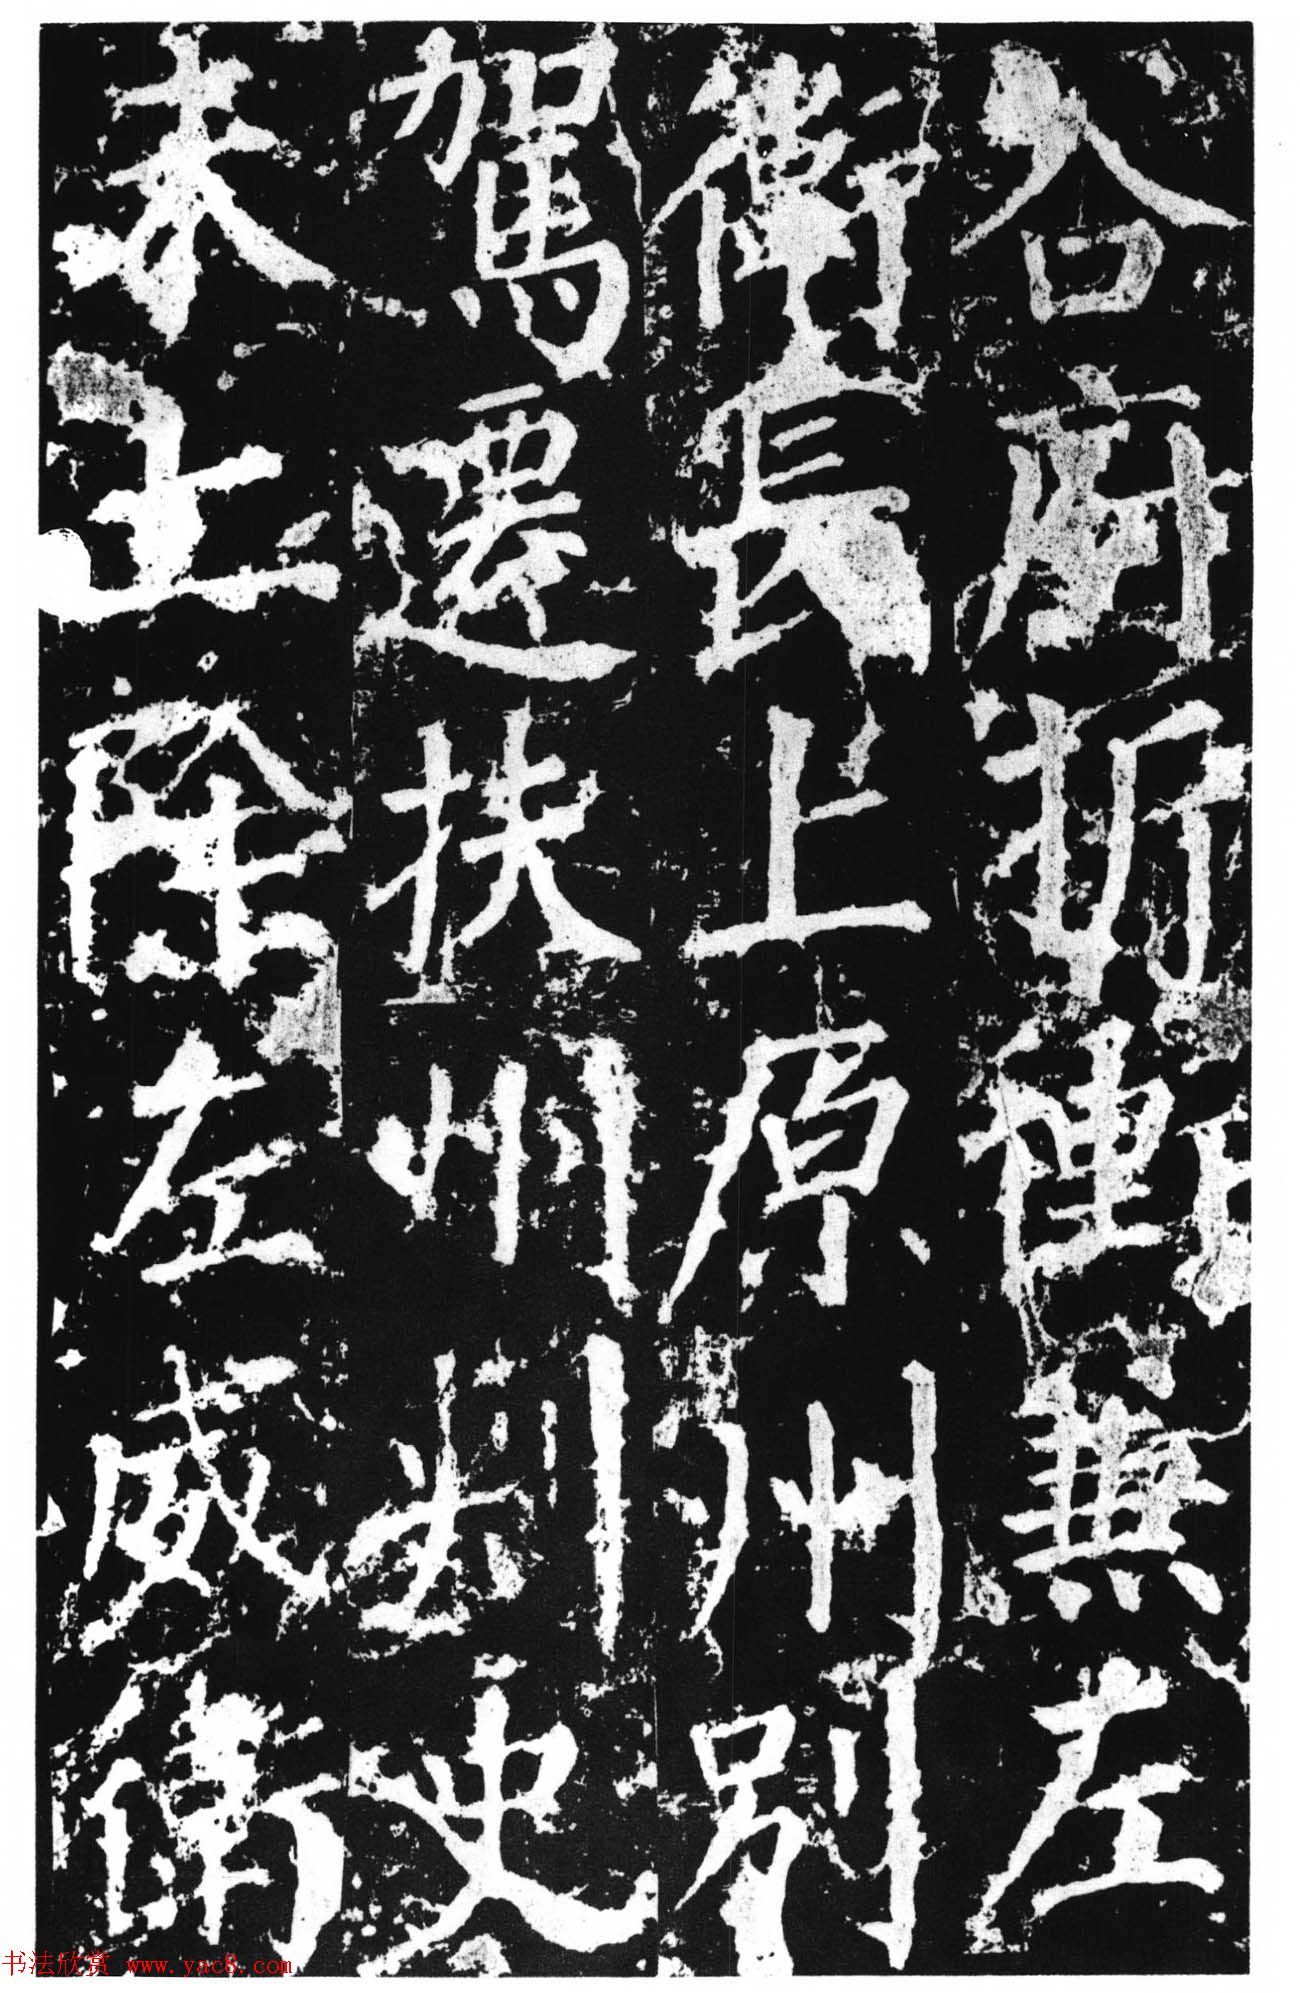 谷府折衝兼左
衛長上原州別
駕遷扶州刺史
未上除左威衛
书法欣赏 www.yac8.com